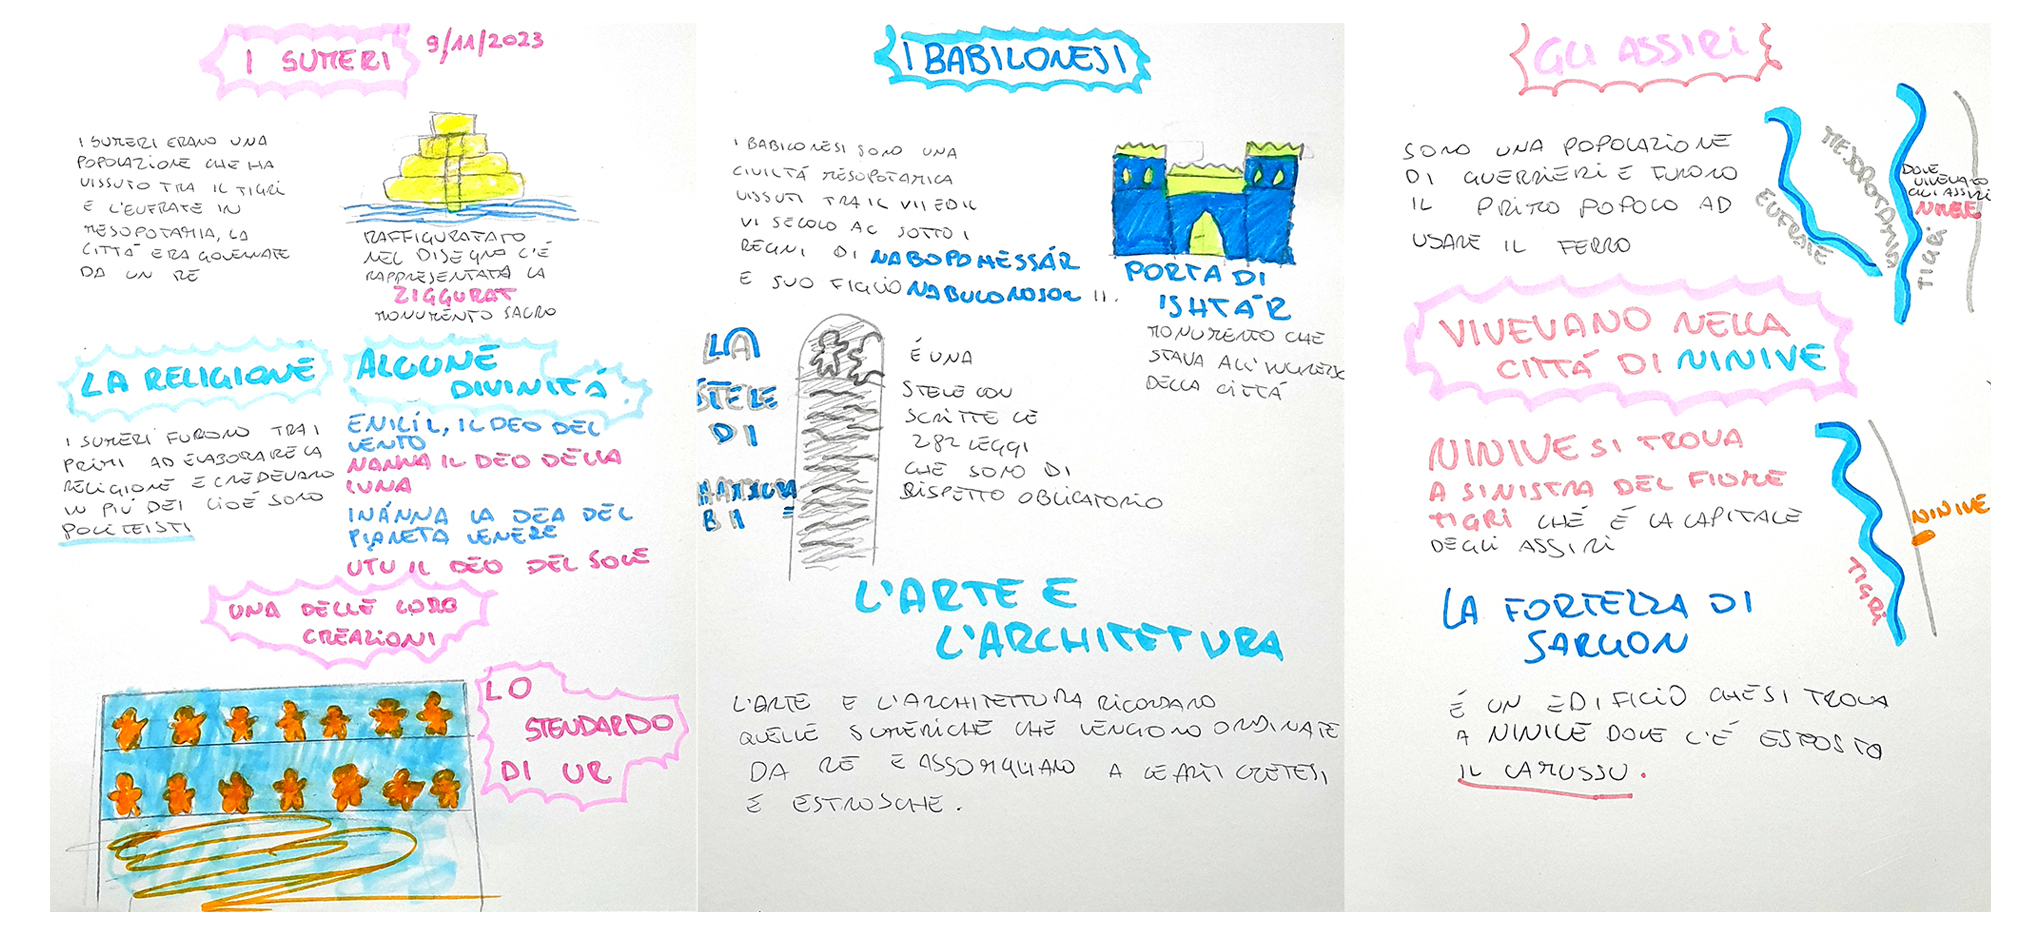 I SUMERI
9/11/2023
I SUMERI ERANO UNA
POPOLAZIONE CHE HA
VISSUTO TRA IL TIGRI
E L'EUFRATE IN
MESOPOTAMIA, LA
CITTÀ ERA GOVERNATE
DA UN RE
RAFFIGURATATO
NEL DISEGNO C'É
RAPPRESENTATA LA
ZIGGURAT
MONUMENTO SACRO
LA RELIGIONE
I SUMERI FURONO TRA I
PRIMI AD ELABORARE LA
RELIGIONE E CREDEVANO
IN PIÚ DEI CIOÉ SONO
POLITEISTI
ALCUNE
DIVINITÁ
ENILÍL, IL DEO DEL
VENTO
NANNA IL DEO DELLA
LUNA
INÁNNA LA DEA DEL
PIANETA VENERE
UTU IL DEO DEL SOLE
UNA DELLE LORO
CREAZIONI
LO
STENDARDO
DI UR
I BABILONESI
I BABILONESI SONO UNA
CIVILTÁ MESOPOTAMICA
VISSUTI TRA IL VII ED IL
VI SECOLO AC SOTTO I
REGNI DI NABOPOMESSÁR
E SUO FIGLIO NABUCONOSOR II.
PORTA DI
ISHTÁR
MONUMENTO CHE
STAVA ALL'INGRESSO
DELLA CITTÁ
LA
STELE
DI
HAMMURA
BI =
É UNA
STELE CON
SCRITTE LE
282 LEGGI
CHE SONO DI
RISPETTO OBLIGATORIO
L'ARTE E
L'ARCHITETTURA
L'ARTE E L'ARCHITETTURA RICORDANO
QUELLE SUMERICHE CHE VENGONO ORDINATE
DA RE E ASSOMIGLIANO A LE ARTI CRETESI
E ESTROSCHE.
GLI ASSIRI
SONO UNA POPOLAZIONE
DI GUERRIERI E FURONO
IL PRIMO POPOLO AD
USARE IL FERRO
EUFRATE
MESOPOTAMIA
TIGRI
DOVE
VIVEVANO
GLI ASSIRI
VIVEVANO NELLA
CITTÁ DI NINIVE
NINIVE SI TROVA
A SINISTRA DEL FIUME
TIGRI CHÉ É LA CAPITALE
DEGLI ASSIRI
TIGRI
NINIVE
LA FORTEZZA DI
SARGON
É UN EDIFICIO CHE SI TROVA
A NINIVE DOVE C'É ESPOSTO
IL CARUSSU.